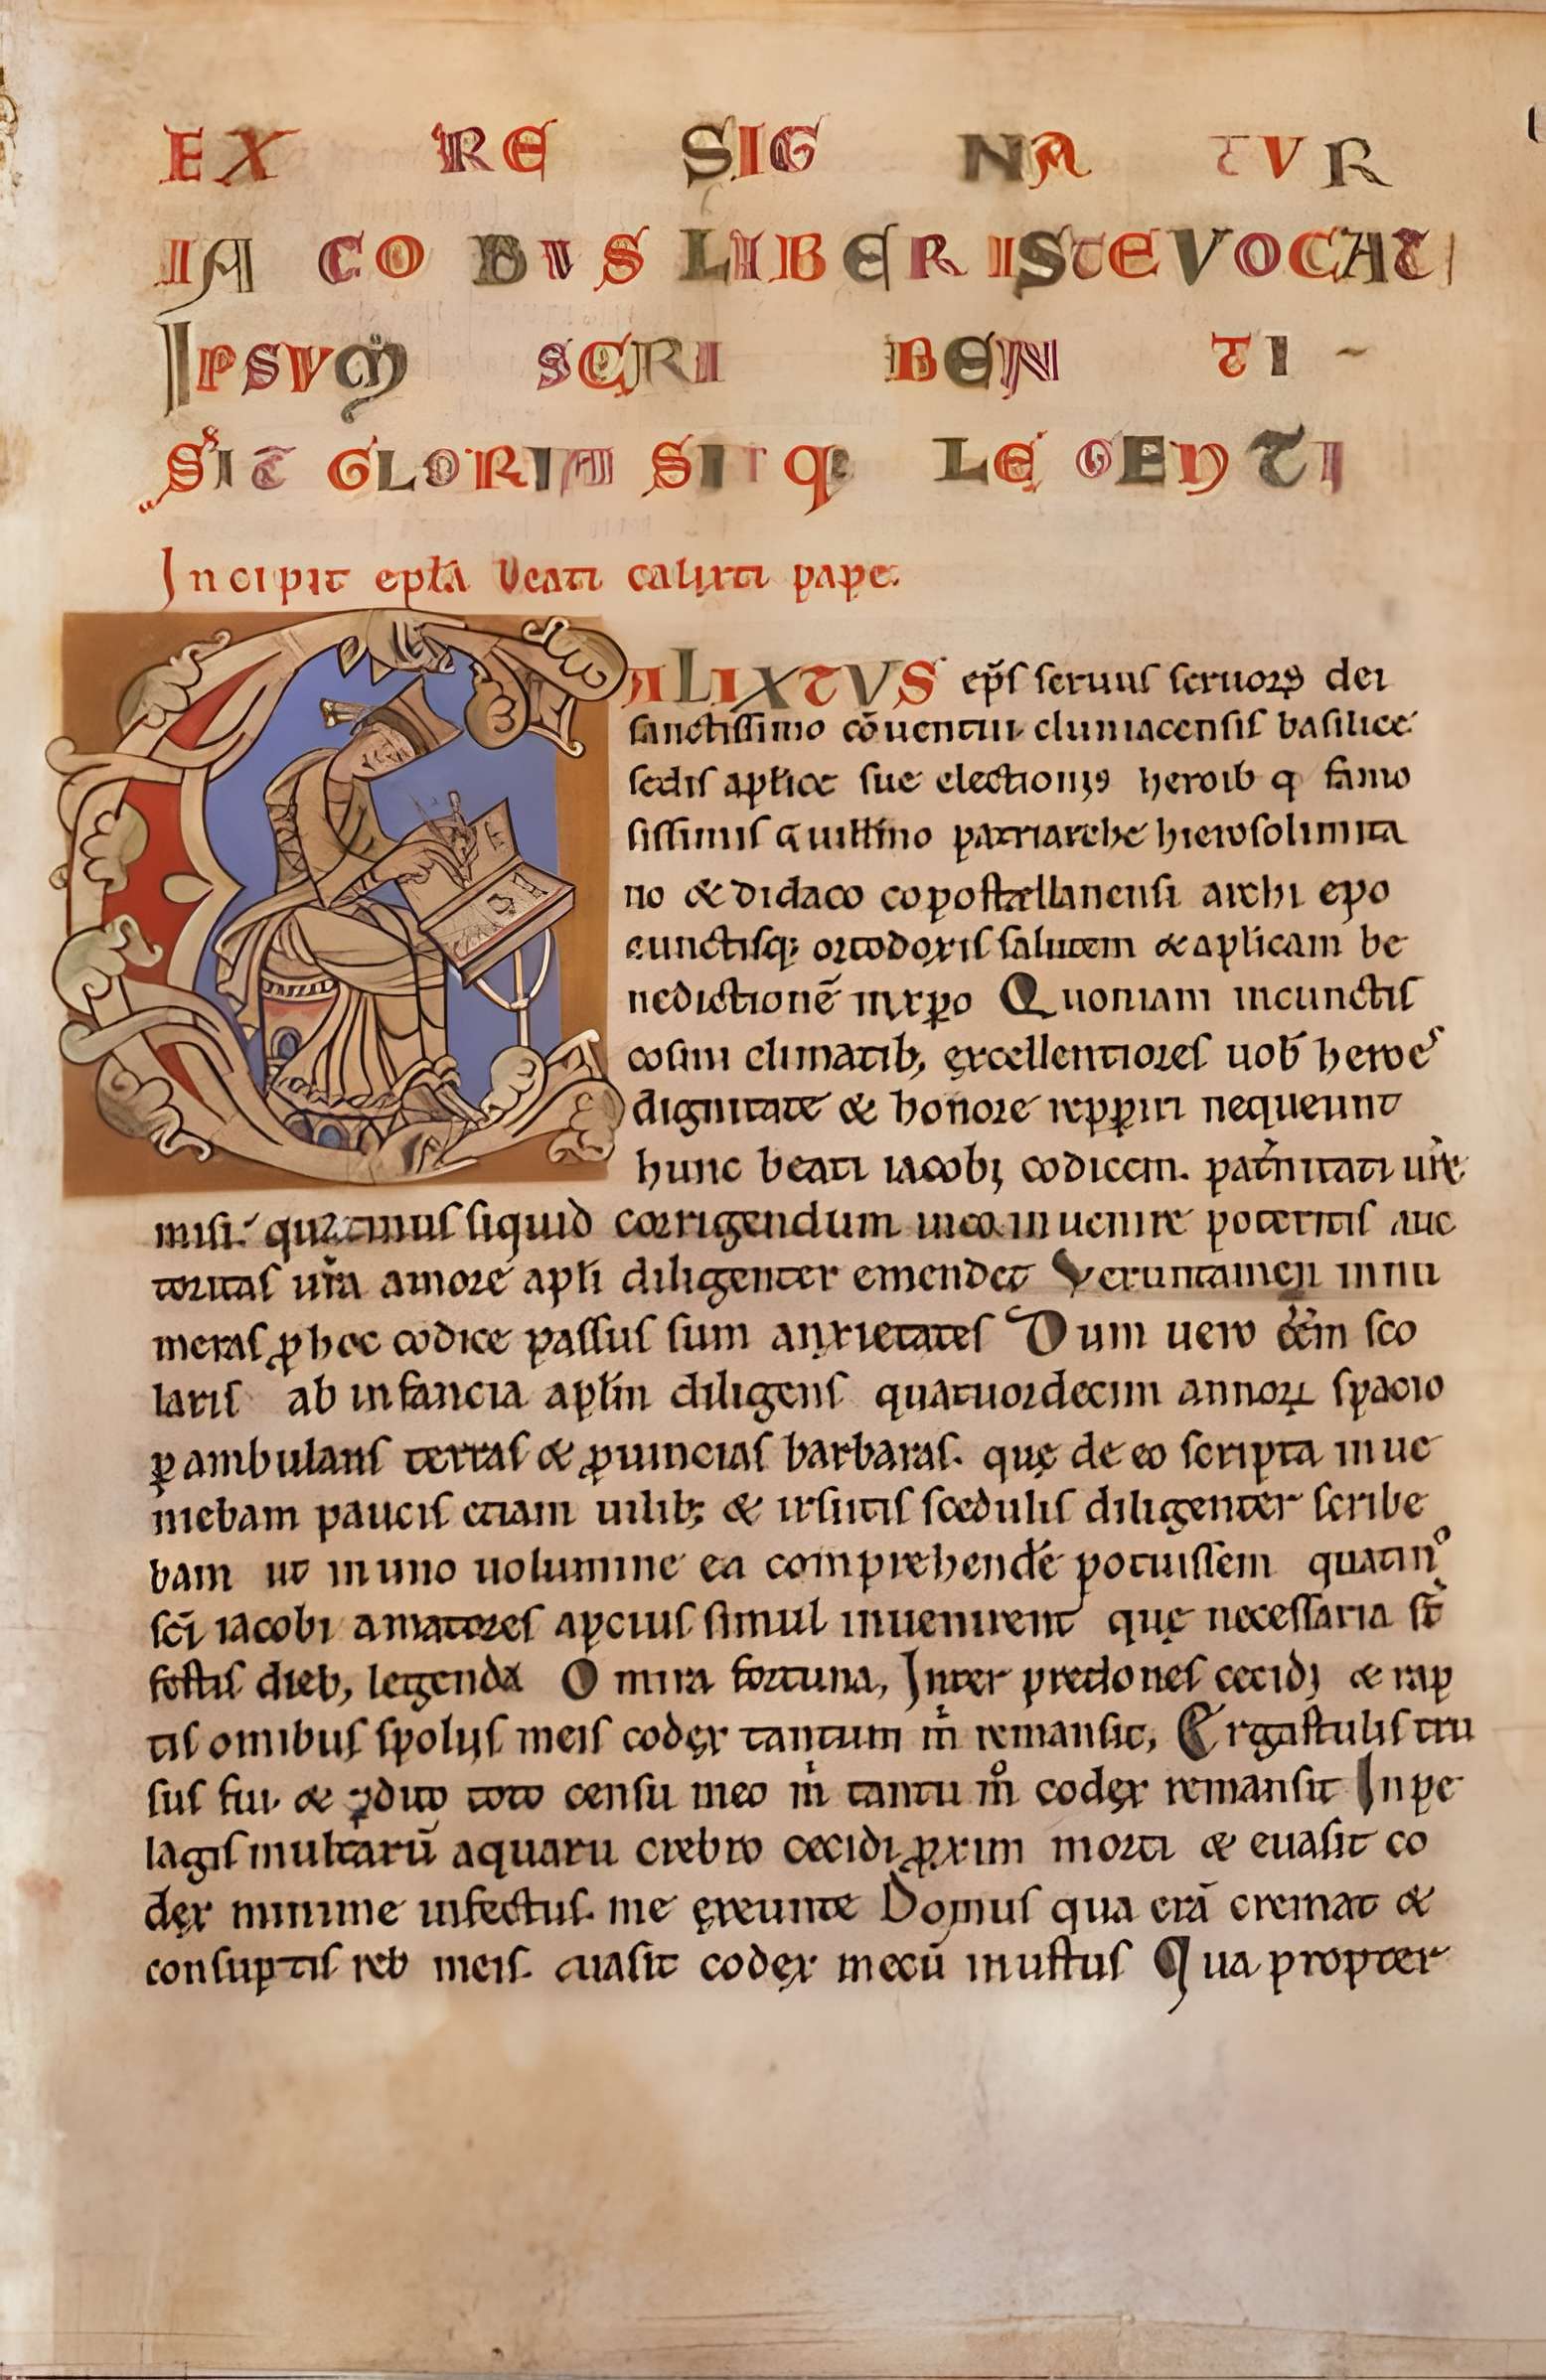 EX RE SIGNATUR
IACOBUS LIBER ISTE VOCATUR
IPSVM SCRIBENTI
SIT GLORIA SITQ LEGENTI
Incipit epła beati calixti pape.
ALIXTVS ep̃s seruus seruoꝝ dei
sanctissimo cōuentui cluniacensis basilice
sedis aplice sue electionis heroib q famo
sissimis Guillmo patriarche hierosolimita
no & didaco copostellanensi archi epo
cunctisq; ortodoxis salutem & aplicam be
nedictionē in xpo Quoniam in cunctis
cosmi climatib; excellentiores uob heroes
dignitate & honore repꝑiri nequeunt
hunc beati iacobi codicem. pat̾nitati ur̃e
misi. quatinus siquid corrigendum in eo inuenire poteritis auc
toritas ur̃a amore apli diligenter emendet Veruntamen innu
meras ꝓ hoc codice passus sum anxietates Dum uero eēm sco
laris ab infancia aplm diligens quatuordecim annoꝝ spacio
ꝑambulans terras & ꝓuincias barbaras. quę de eo scripta inue
niebam paucis etiam uilib; & irsutis scedulis diligenter scribe
bam ut in uno uolumine ea comprehendẽ potuissem quatin᷒
sc̃i iacobi amatores apcius simul inuenirent quę necessaria st̃
festis dieb; legenda O mira fortuna, Inter predones cecidi & rap
tis omibus spoliis meis codęx tantum m̊ remansit, Ergastulis tru
sus fui. & ꝑdito toto censu meo m̊ tantu m̊ codęx remansit In pe
lagis multarū aquaru crebro cecidi ꝓxim morti & euasit co
dęx minime infectus. me ęxeunte Domus qua erā cremat &
consuptis reb meis. euasit codęx mecū inustus Qua propter